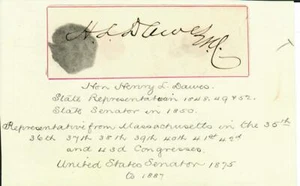 H. L. Dawes
Hon Henry L. Dawes.
State Representative in 1848. 49 & 52.
State Senator in 1850.
Representative from Massachusetts in the 35th
36th 37th 38th 39th 40th 41st 42d
and 43d Congresses.
United States Senator 1875
to 1887